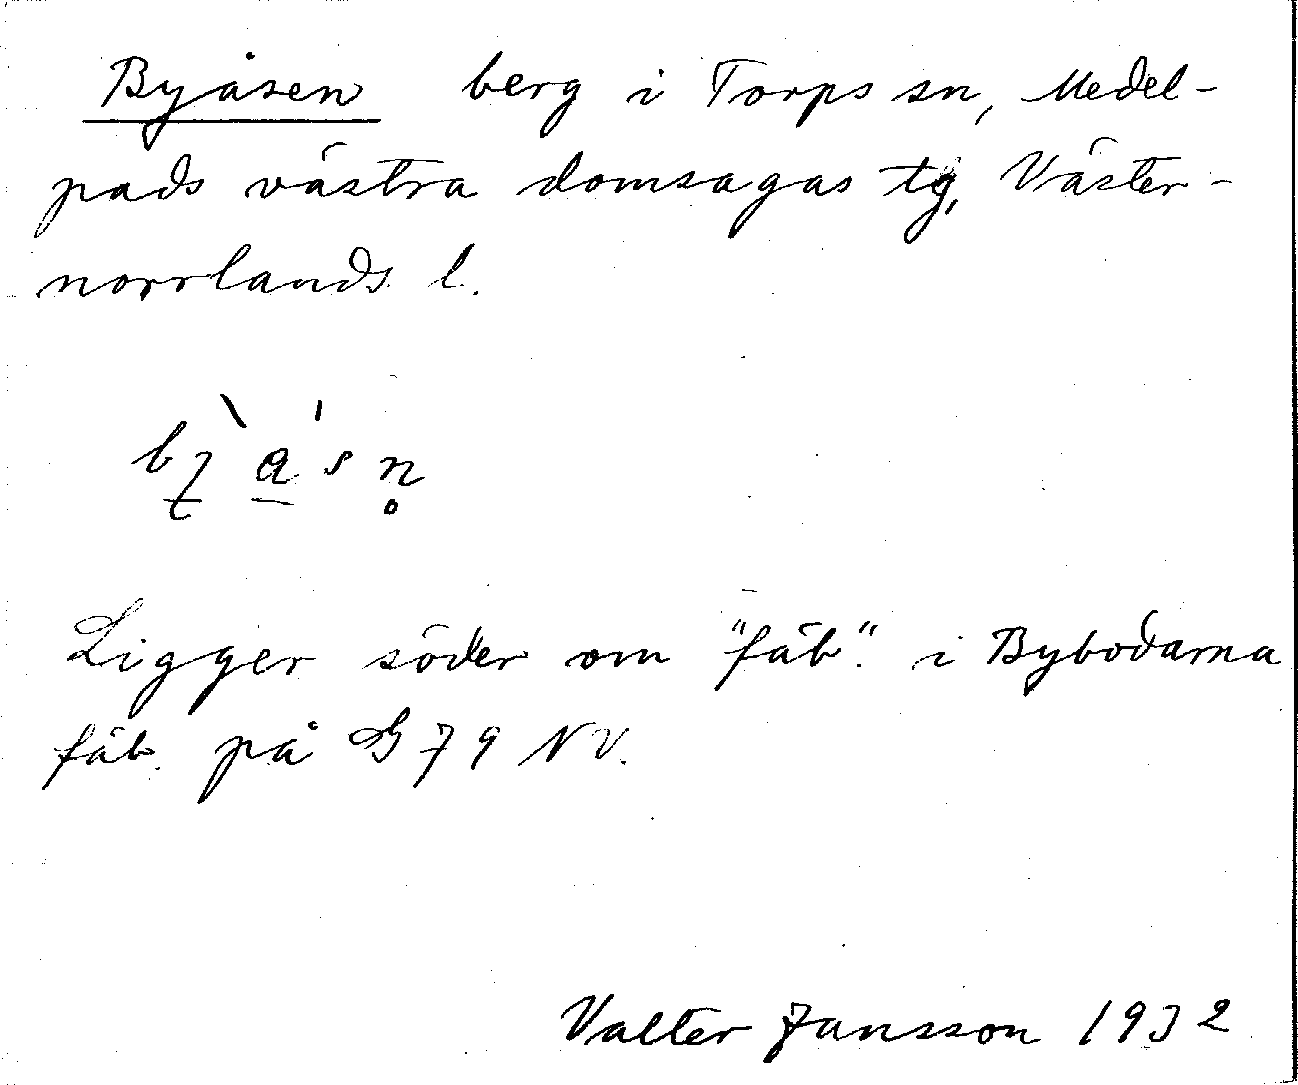 Byåsen berg i Torps sn, Medel-
pads västra domsagas tg, Väster-
norrlands l.
Ligger söder om "fäb." i Bybodarna
fäb. på G 79 NV.
Valter Jansson 1932